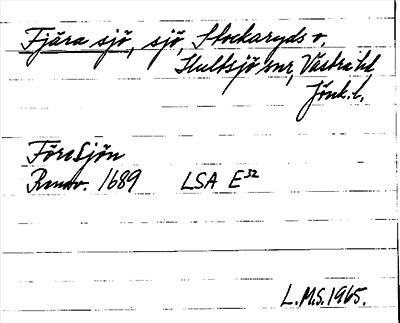 Fjära sjö, sjö, Stockaryds o.
Hultsjö snr, Västra hd,
Jönk. l.
Försjön
Rannv. 1689 LSA E32
L.M.S. 1965.